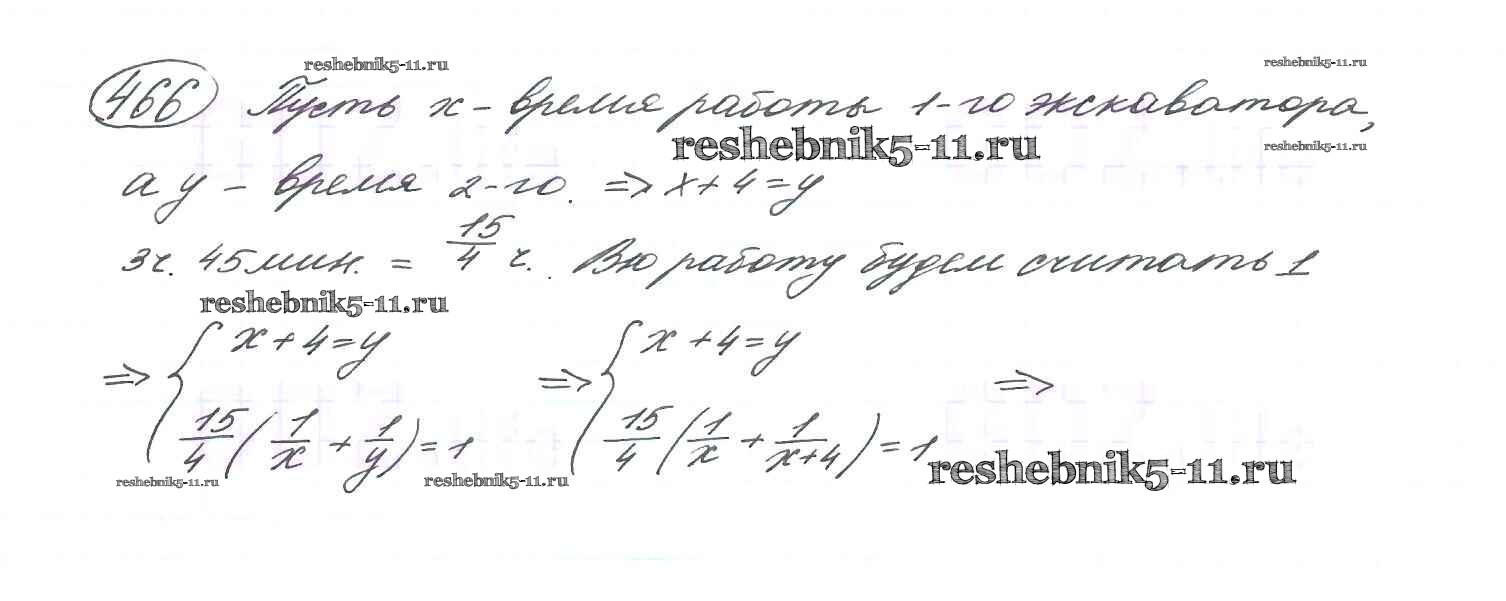 reshebnik5-11.ru reshebnik5-11.ru
466 Пусть x – время работы 1-го экскаватора,
reshebnik5-11.ru reshebnik5-11.ru
а y – время 2-го. ⇒ x + 4 = y
3ч. 45 мин. = 15/4 ч. Вю работу будем считать 1
reshebnik5-11.ru
⇒ { x + 4 = y ⇒ { x + 4 = y ⇒
15/4 (1/x + 1/y) = 1 15/4 (1/x + 1/x+4) = 1
reshebnik5-11.ru reshebnik5-11.ru reshebnik5-11.ru